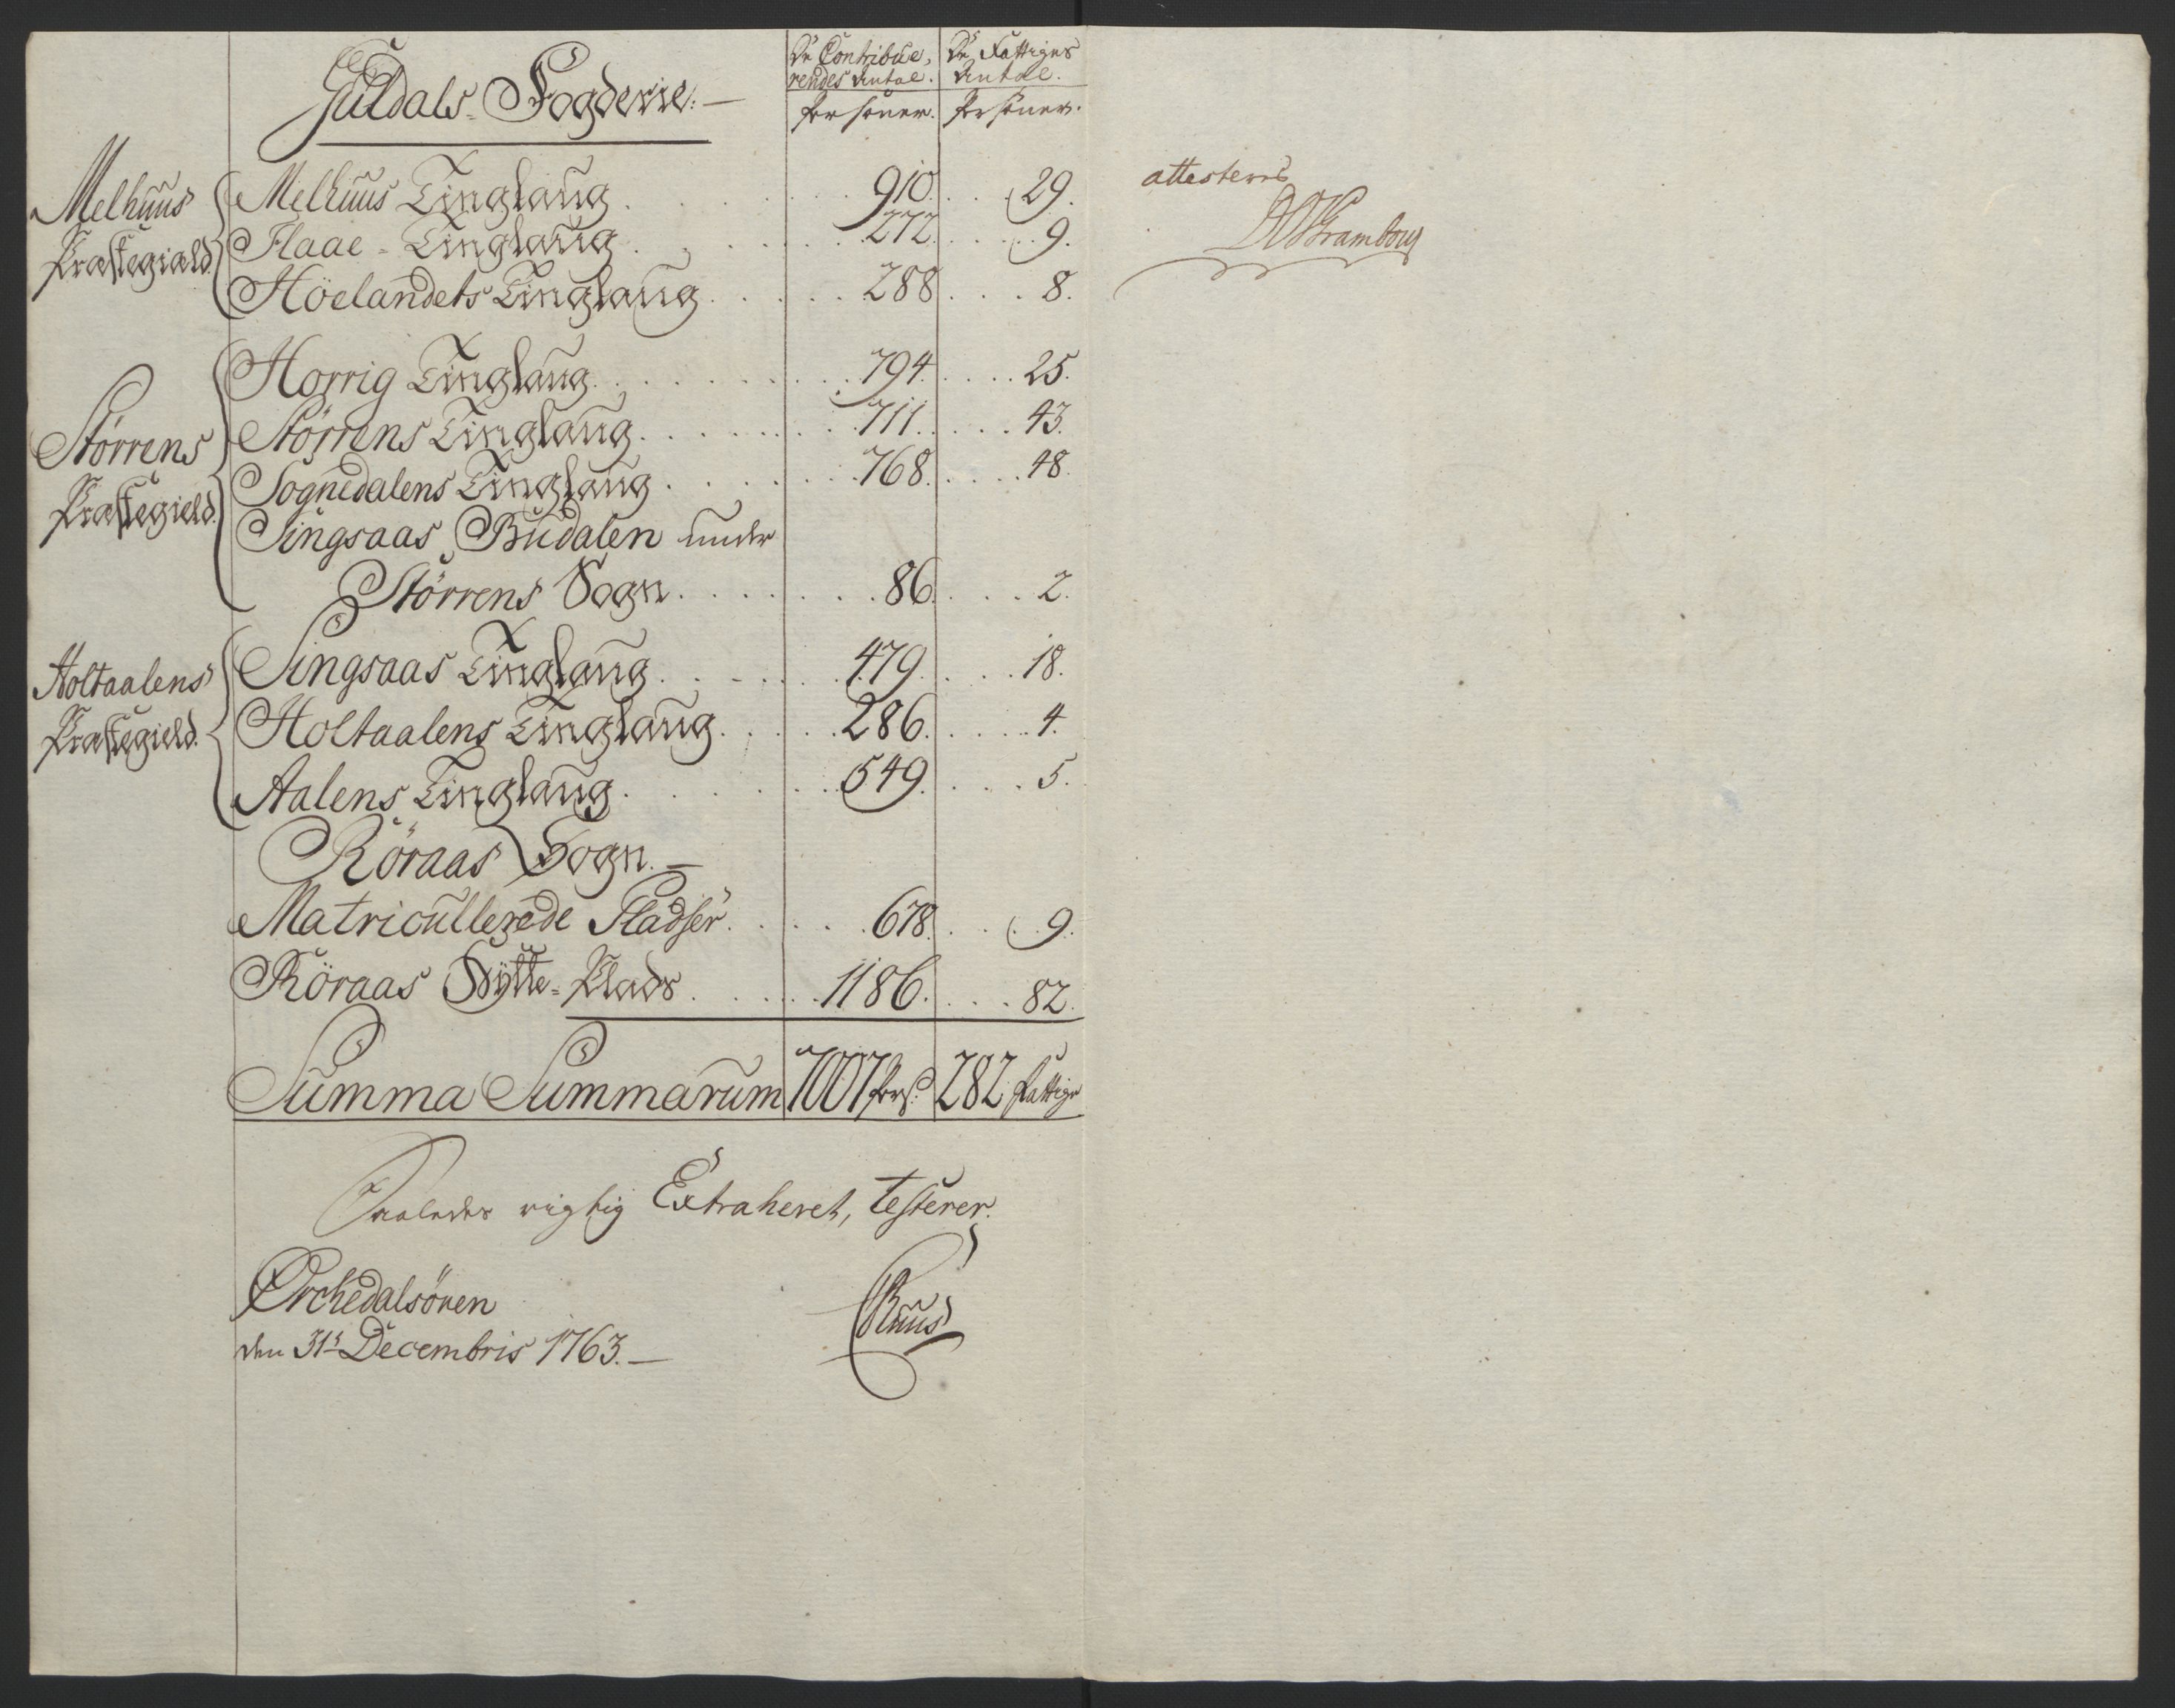 De Contribue, De Fattiges
rendes Antal. Antal.
Guldals Fogderie. Personer. Personer.
Melhuus Præstegiæld.
Melhuus Tinglaug 910. 29.
Flaae Tinglaug 272. 9.
Höelandets Tinglaug 288 8.
Störrens Præstegield.
Horrig Tinglaug 794. 25.
Störrens Tinglaug 711. 43.
Sognedalens Tinglaug 768. 48.
Singsaas, Budalen under
Störrens Sogn 86. 2.
Holtaalens Præstegield.
Singsaas Tinglaug 479. 18.
Holtaalens Tinglaug 286. 4.
Aalens Tinglaug 549. 5.
Röraas Sogn.
Matricullerede Pladser 678. 9.
Röraas Hytte-Plads 1186. 82.
Summa Summarum 7007 pers. 282 fattige
Saaledes rigtig Extraheret, testerer.
Orchedalsören
den 31t Decembris 1763.
attesteres